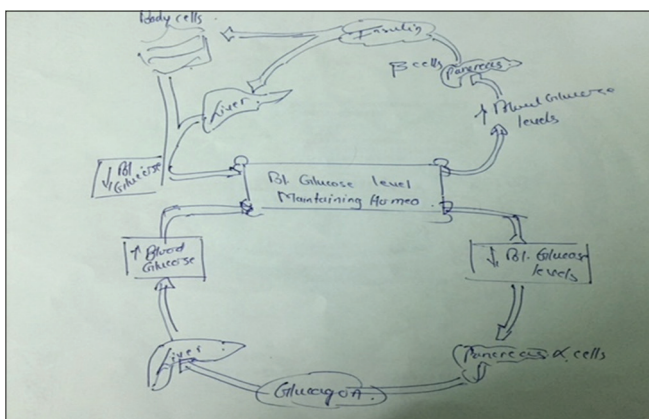 Body cells
Insulin
β cells Pancreas
Liver
↑ Blood Glucose
levels
↓ Bl.
Glucose
Bl. Glucose level
Maintaining Homeo.
↑ Blood
Glucose
↓ Bl. Glucose
levels
Liver
Pancreas α cells
Glucagon.